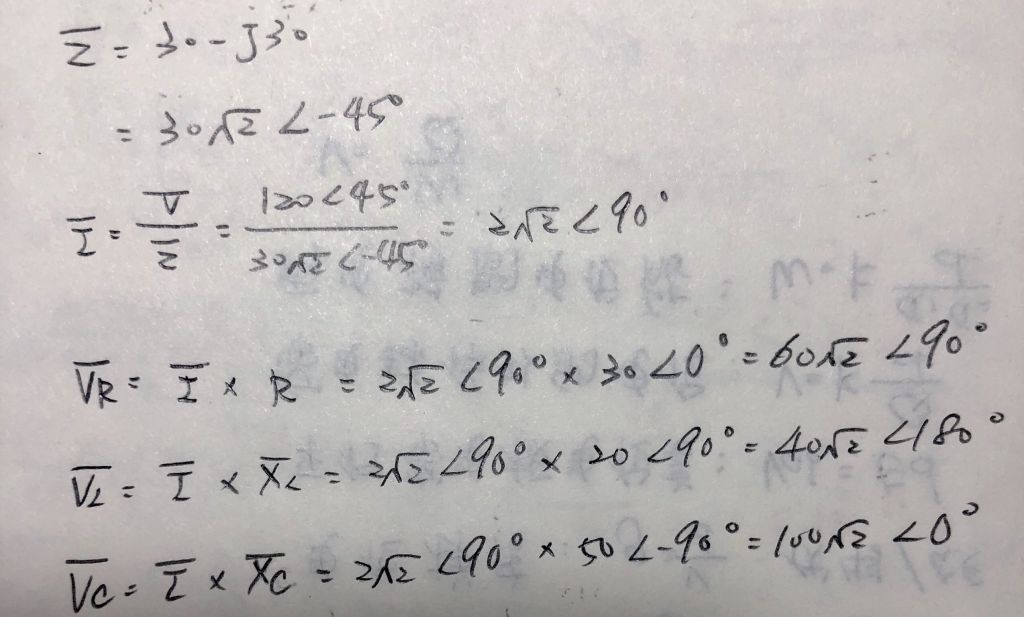 Z̅ = 30 - J30
= 30√2 ∠-45°
I̅ = V̅ / Z̅ = 120∠45° / 30√2 ∠-45° = 2√2 ∠90°
V̅R = I̅ × R = 2√2 ∠90° × 30∠0° = 60√2 ∠90°
V̅L = I̅ × X̅L = 2√2 ∠90° × 20∠90° = 40√2 ∠180°
V̅C = I̅ × X̅C = 2√2 ∠90° × 50∠-90° = 100√2 ∠0°